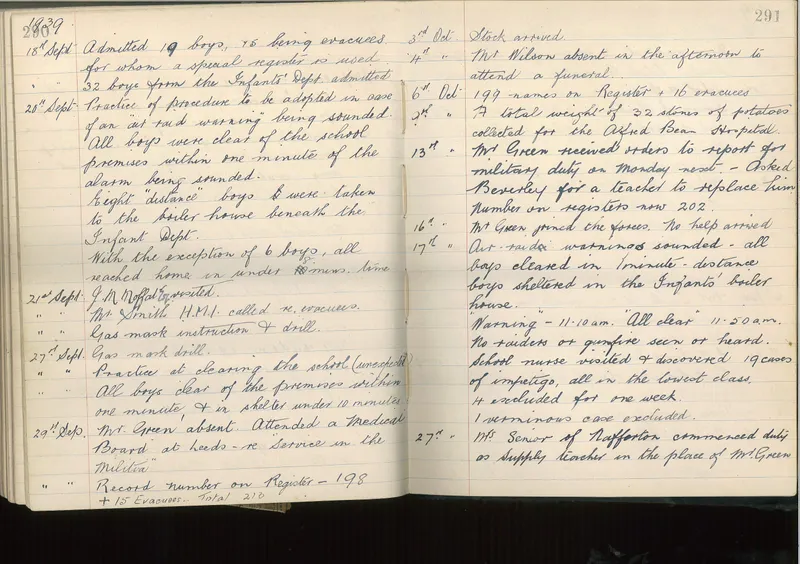 290
1939
18th Sept Admitted 19 boys, 15 being evacuees
for whom a special register is used.
" " 32 boys from the Infants' Dept. admitted
20th Sept Practice of procedure to be adopted in case
of an "air raid warning" being sounded.
All boys were clear of the school
premises within one minute of the
alarm being sounded.
Eight "distance" boys were taken
to the boiler house beneath the
Infant Dept.
With the exception of 6 boys, all
reached home in under mins. time
21st Sept J. M Moffat Esq visited.
" " Mr Smith H.M.I. called re. evacuees.
" " Gas mask instruction & drill.
27th Sept. Gas mark drill.
" " Practice at clearing the school (unexpected)
" " All boys clear of the premises within
one minute, & in shelter under 10 minutes
29th Sep. Mr. Green absent. Attended a Medical
Board at Leeds - re "Service in the
Militia"
" " Record number on Register - 198
+ 15 Evacuees.. Total 213
291
3rd Oct Stock arrived.
4th " Mr Wilson absent in the afternoon to
attend a funeral.
6th Oct 199 names on Register + 16 evacuees
" A total weight of 32 stones of potatoes
collected for the Alfred Bean Hospital.
13th " Mr Green received orders to report for
military duty on Monday next. - Asked
Beverley for a teacher to replace him
Number on registers now 202.
16th " Mr Green joined the forces. No help arrived
17th " Air-raid warning sounded - all
boys cleared in 1 minute - distance
boys sheltered in the Infants' boiler
house.
"Warning" - 11.10 am. "All clear" 11.50 am.
No raiders or gunfire seen or heard.
School nurse visited & discovered 19 cases
of impetigo, all in the lowest class.
4 excluded for one week.
1 verminous case excluded.
27th " Mrs Senior of Nafferton commenced duty
as Supply teacher in the place of Mr Green